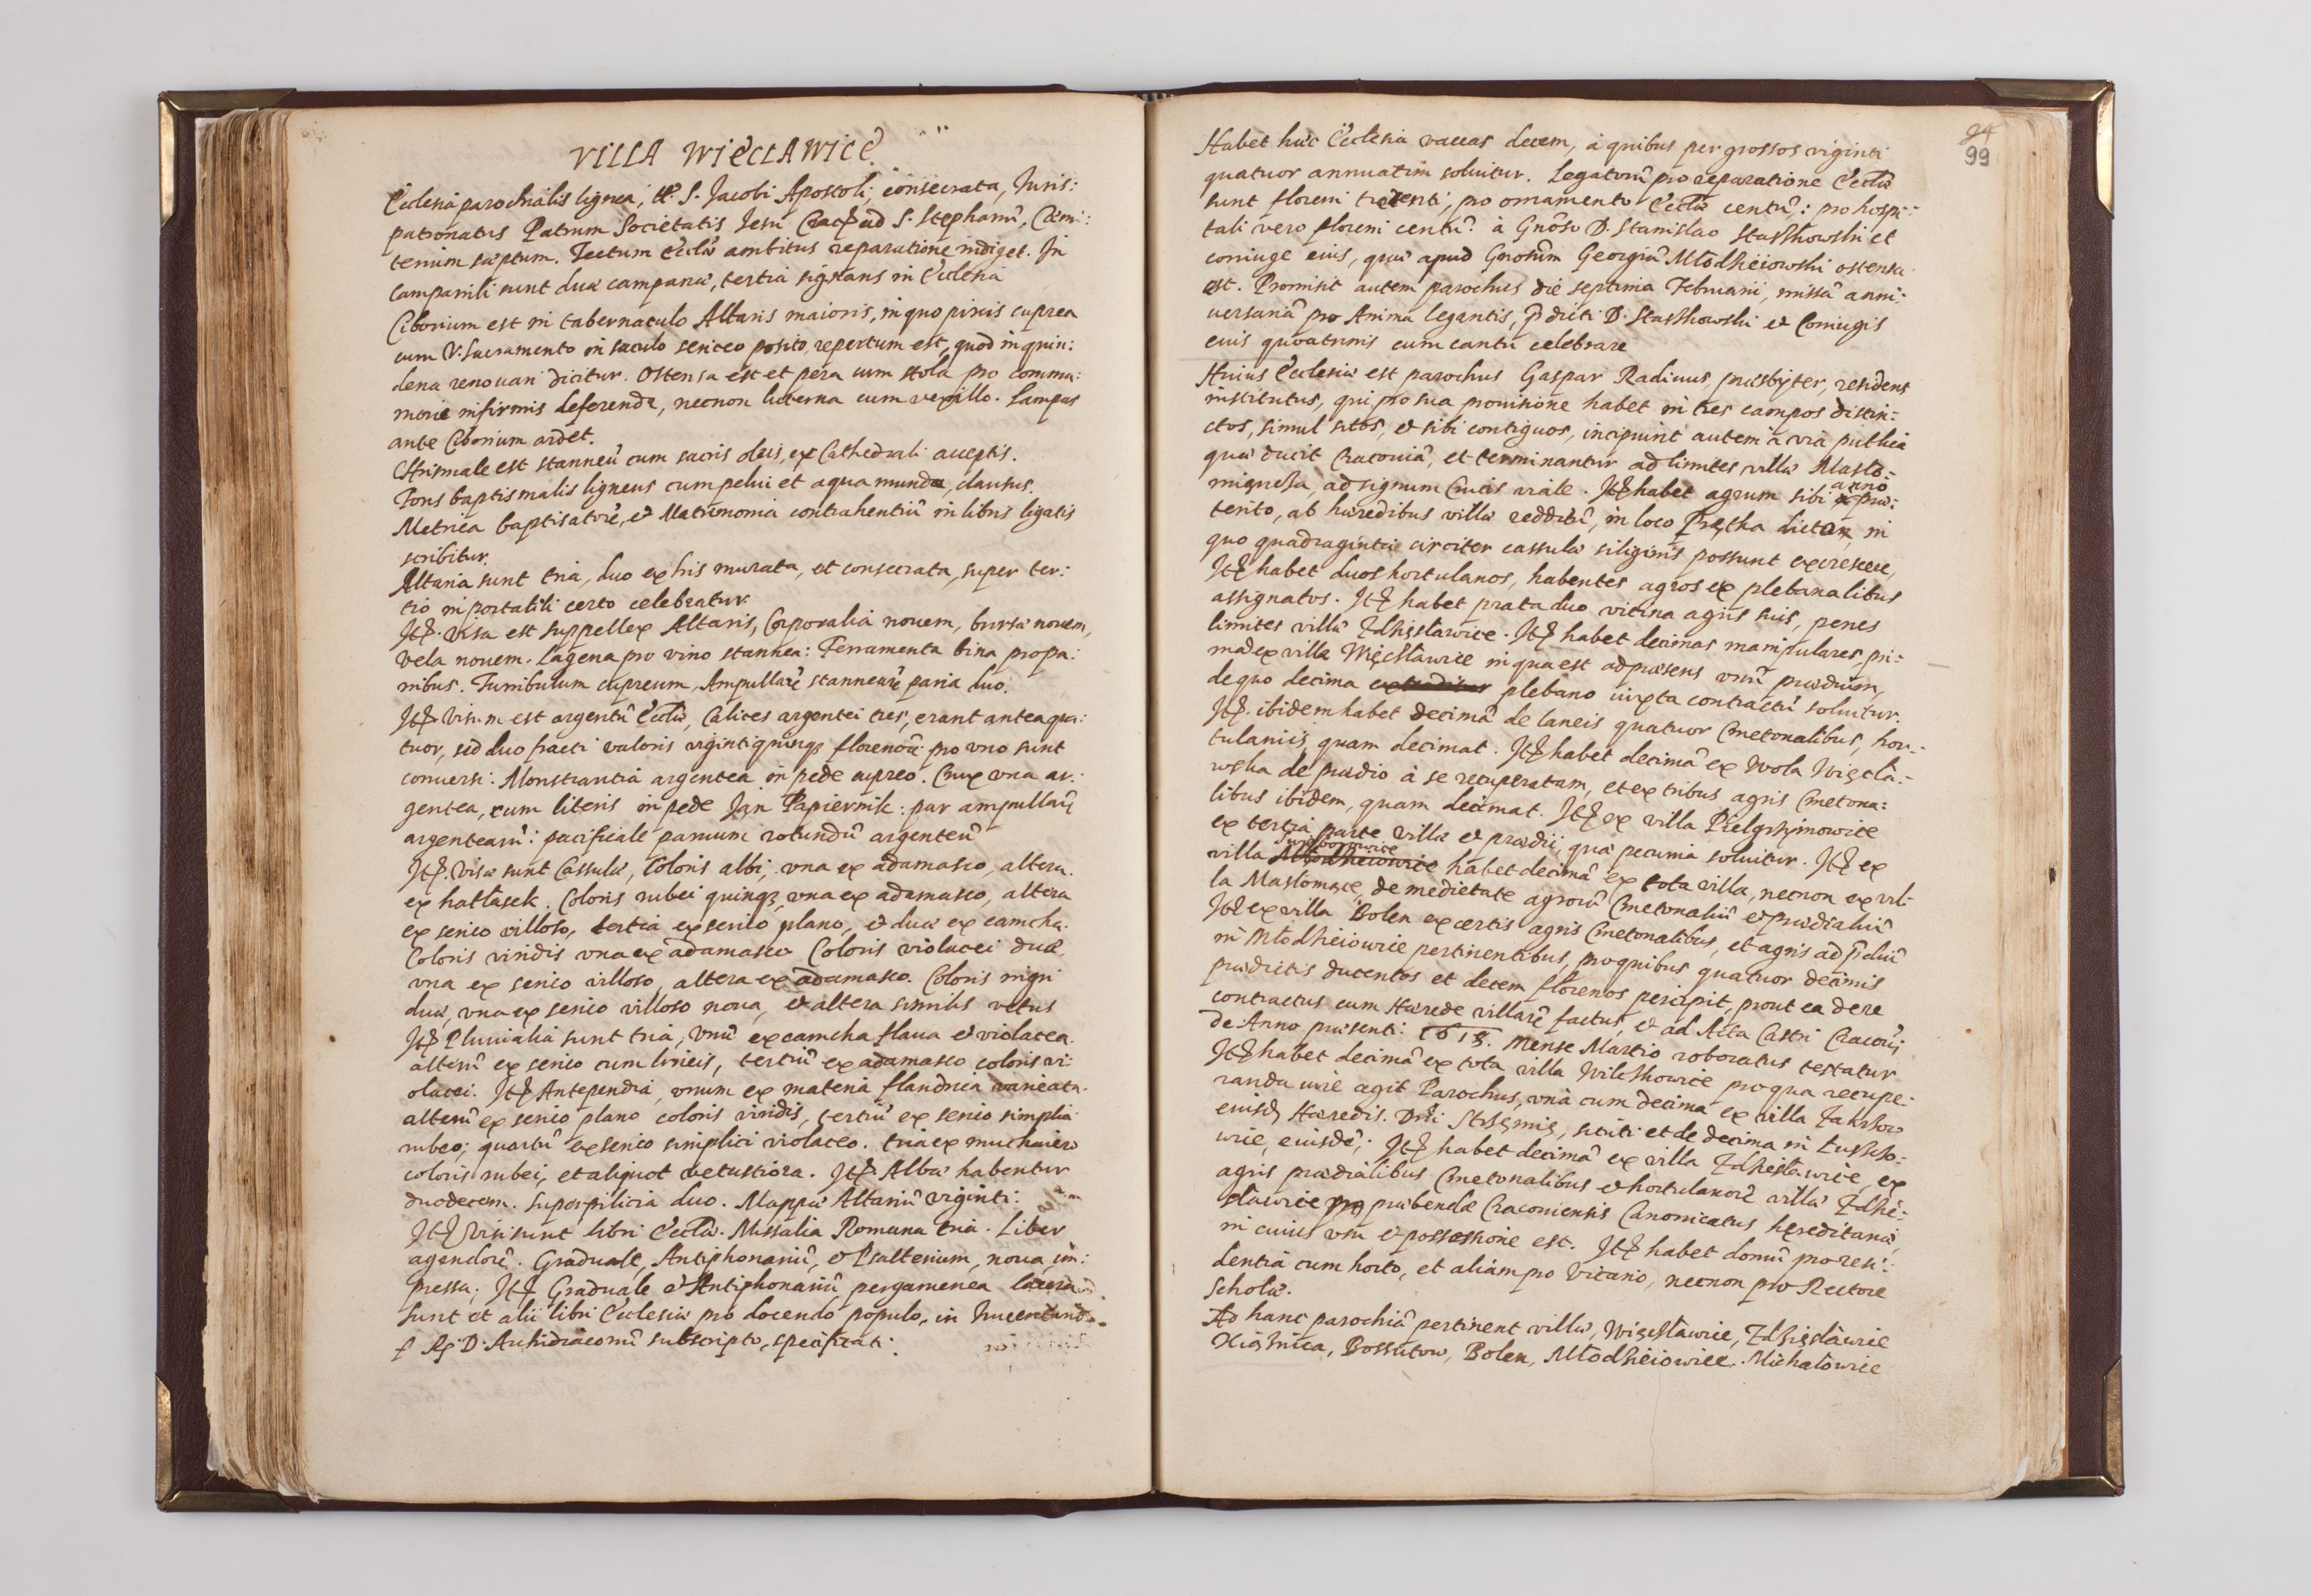 VILLA WIĘCŁAWICE
Ecclesia parochialis lignea, tt. S. Jacobi Apostoli, consecrata, Juris:
patronatus Patrum Societatis Jesu Crac. ad S. Stephanũ, Cæmi:
terium sæptum. Tectum Eccłæ ambitus reparatione indiget. In
Campanili sunt duæ campanæ, tertia signans in Ecclesia
Ciborium est in tabernaculo Altaris maioris, in quo pixis cuprea
cum V. Sacramento in sacculo sericeo posito, repertum est, quod in quin:
dena renouari dicitur. Ostensa est et pera cum stola pro commu:
nione infirmis deferenda, necnon luterna cum vexillo. Lampas
ante Ciborium ardet.
Chrismale est stanneũ cum sacris oleis, ex Cathedrali acceptis.
Fons baptismalis ligneus cum pelui et aqua munda, clausus.
Metrica baptisatorũ, et Matrimonia contrahentiũ in libris ligatis
scribitur.
Altaria sunt tria, duo ex his murata, et consecrata, super ter:
tio in portatili certo celebratur.
Itẽ. Visa est suppellex Altaris, Corporalia nouem, bursæ nouem,
Vela nouem. Lagena pro vino stannea: Ferramenta bina pro pa:
nibus. Turribulum cupreum, Ampullarũ stannearũ paria duo.
Itẽ. Visum est argentũ Eccłæ, Calices argentei tres, erant antea qua:
tuor, sed duo fracti valoris viginti quinq; florenorũ pro vno sunt
conuersi. Monstrantia argentea in pede cupreo. Crux vna ar:
gentea, cum literis in pede Jan Papiernik: par ampullarũ
argentearũ: pacificale paruum rotundũ argenteũ
Itẽ. Visæ sunt Cassulæ, Coloris albi, vna ex adamasco, altera
ex hatłasek. Coloris rubei quinq;, vna ex adamasco, altera
ex serico villoso, tertia ex serico plano, et duæ ex camcha.
Coloris viridis vna ex adamasco Coloris violacei duæ,
vna ex serico villoso, altera ex adamasco. Coloris nigri
duæ, vna ex serico villoso noua, et altera similis vetus
Itẽ Pluuialia sunt tria, vnũ ex camcha flaua et violacea.
alterũ ex serico cum lineis, tertiũ ex adamasco coloris vi:
olacei. Itẽ Antependia, vnum ex materia flandrica variata.
alterũ ex serico plano coloris viridis, tertiũ ex serico simplici
rubeo; quartũ ex serico simplici violaceo. tria ex muchaiero
coloris rubei, et aliquot vetustiora. Itẽ Albæ habentur
duodecem. Superpilicia duo. Mappæ Altariũ viginti:
Itẽ Visi sunt libri Eccłæ. Missalia Romana tria. Liber
agendorũ. Graduale, Antiphonariũ, et Psalterium, noua, im:
pressa; Itẽ Graduale et Antiphonariũ pergamenea lacera
Sunt et alii libri Ecclesiæ pro docendo populo, in Inuentario
p R. D. Archidiaconũ subscripto, specificati.
99
Habet hæc Ecclesia vaccas decem, à quibus per grossos viginti
quatuor annuatim soluitur. Legatorũ pro reparatione Eccłæ
sunt floreni trecenti, pro ornamento Eccłæ centũ: pro hospi:
tali vero floreni centũ à Gñoso D. Stanislao Staszkowski et
coniuge eius, quæ apud Gñosum Georgiũ Młodzieiowski ostensa
est. Promisit autem parochus die septima Februarii, missã anni:
uersariã pro Anima legantis, p̃dicti D. Staszkowski et Coniugis
eius quotannis cum cantu celebrare
Huius Ecclesiæ est parochus Gaspar Radinus, præsbyter, residens
institutus, qui pro sua prouisione habet in tres campos distin:
ctos, simul sitos, et sibi contiguos, incipiunt autem à via publica
quæ ducit Cracouiã, et terminantur ad limites villæ Masło:
migneża, ad signum Crucis viale. Itẽ habet agrum sibi anno præ:
terito, ab hæredibus villæ redditũ, in loco Prętka dictor, in
quo quadraginta circiter cassulæ siliginis possunt excrescere,
Itẽ habet duos hortulanos, habentes agros ex plebanalibus
assignatos. Itẽ habet prata duo vicina agris suis, penes
limites villæ Zdzięsławice. Itẽ habet decimas manipulares, pri:
mã ex villa Więcsławice in qua est ad præsens vnũ prædium,
de quo decima plebano iuxta contractũ soluitur.
Itẽ. ibidem habet decimã de laneis quatuor Cmetonalibus, hor:
tulaniis, quam decimat. Itẽ habet decimã ex Wola Więcła:
wska de prædio à se recuperatam, et ex tribus agris Cmetona:
libus ibidem, quam decimat. Itẽ ex villa Pielgrzymowice
ex tertia parte villæ et prædii, quæ pecunia soluitur. Itẽ ex
villa habet decimã ex tota villa, necnon ex vil:
la Masłomącę, de medietate agrorũ Cmetonaliũ et prædialiũ
Itẽ ex villa Bolen ex certis agris Cmetonalibus, et agris ad p̃diũ
in Młodzieiowice pertinentibus, pro quibus quatuor decimis
prædictis ducentos et decem florenos percipit, prout ea de re
contractus cum Hærede villarũ factus, et ad Acta Castri Cracouiẽ
de Anno præsenti: 1618. Mense Martio roboratus testatur
Itẽ habet decimã ex tota villa Wilczkowice pro qua recupe:
randa iure agit Parochus, vnà cum decima ex villa Zakrzow
eiusd; Hæredis. Dñi Strzęmię, sicuti et de decima in Łuszczo:
wice, eiusdẽ; Itẽ habet decimã ex villa Zdziesławice, ex
agris prædialibus Cmetonalibus et hortulanorũ villæ Zdzie:
sławice pro præbenda Cracouiensis Canonicatus hęreditaria,
in cuius vsu et possessione est. Itẽ habet domũ pro resi:
dentia cum horto, et aliam pro Vicario, necnon pro Rectore
Scholæ.
Ad hanc parochiã pertinent villæ, Więcsławice, Zdzięsławice
Xiąznica, Bossutow, Bolen, Młodzieiowice, Michałowice